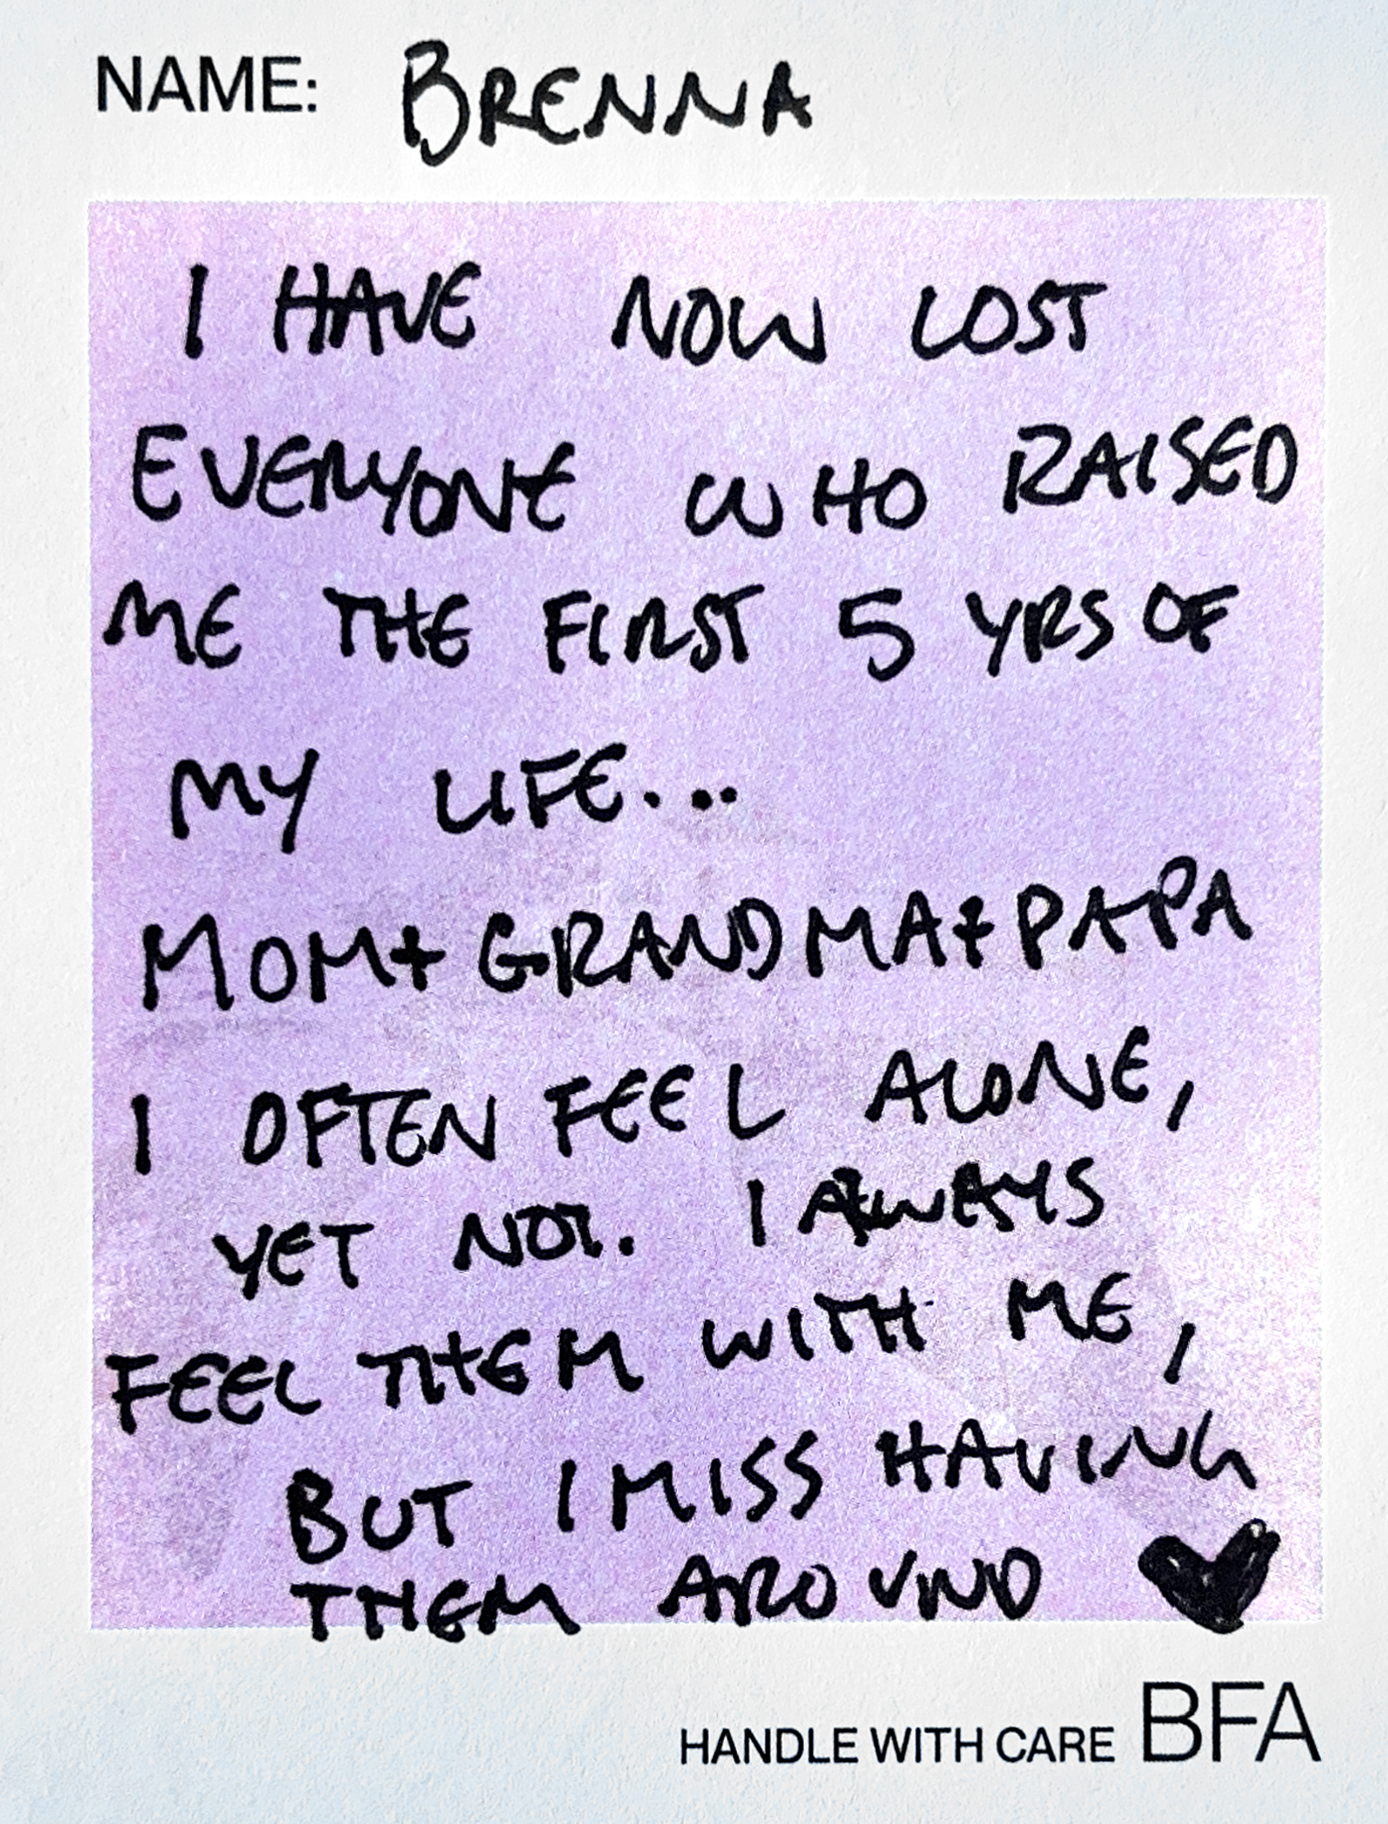 NAME: BRENNA
I HAVE NOW LOST
EVERYONE WHO RAISED
ME THE FIRST 5 YRS OF
MY LIFE...
MOM + GRANDMA + PAPA
I OFTEN FEEL ALONE,
YET NOT. I ALWAYS
FEEL THEM WITH ME,
BUT I MISS HAVING
THEM AROUND ♥
HANDLE WITH CARE BFA